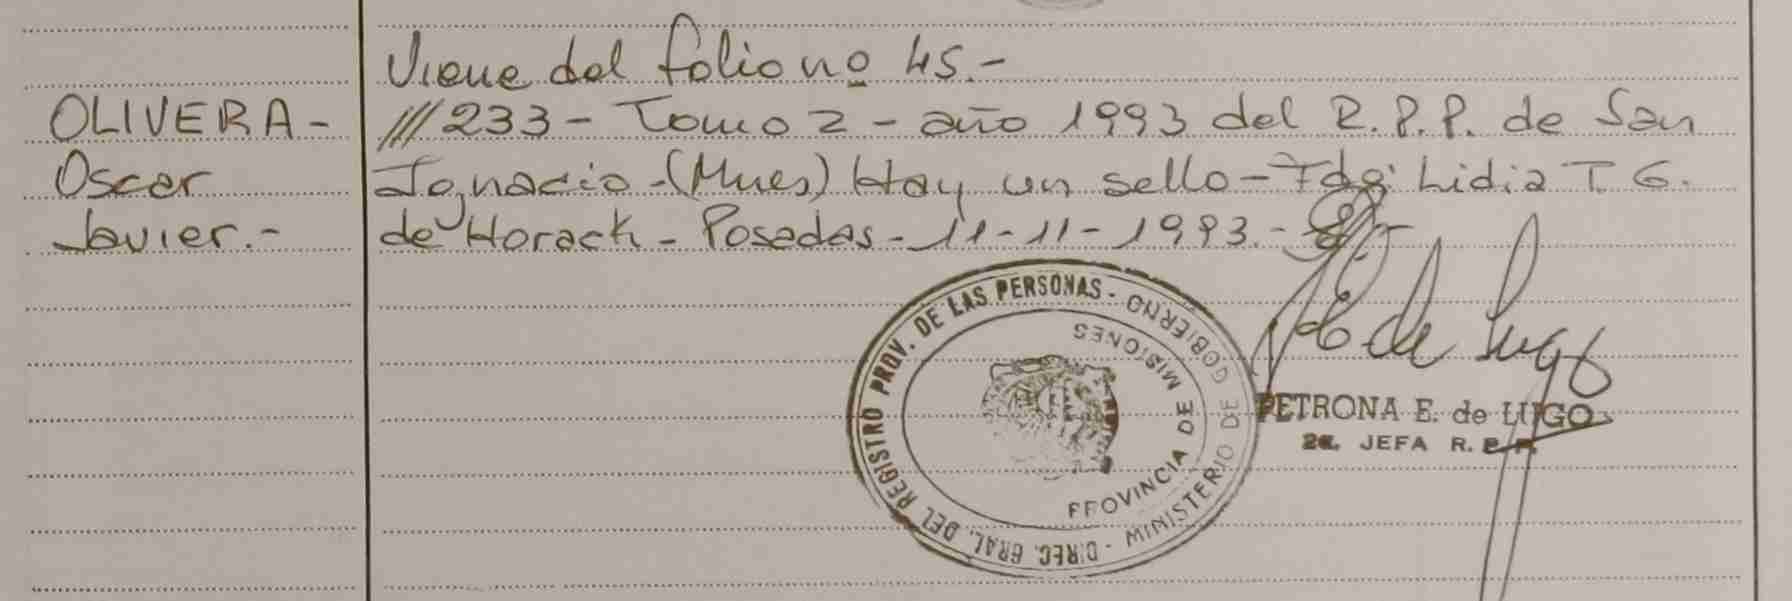 Viene del folio nº 45.-
OLIVERA-
Oscar
Javier.-
///233- Tomo 2 - año 1993 del R.P.P. de San
Ignacio-(Mnes) Hay un sello- Fdo: Lidia T. G.
de Horack- Posadas- 11-11-1993.-
E. de Lugo
DIREC. GRAL. DEL REGISTRO PROV. DE LAS PERSONAS-
MINISTERIO DE GOBIERNO
PROVINCIA DE MISIONES
PETRONA E. de LUGO
2a. JEFA R.P.P.